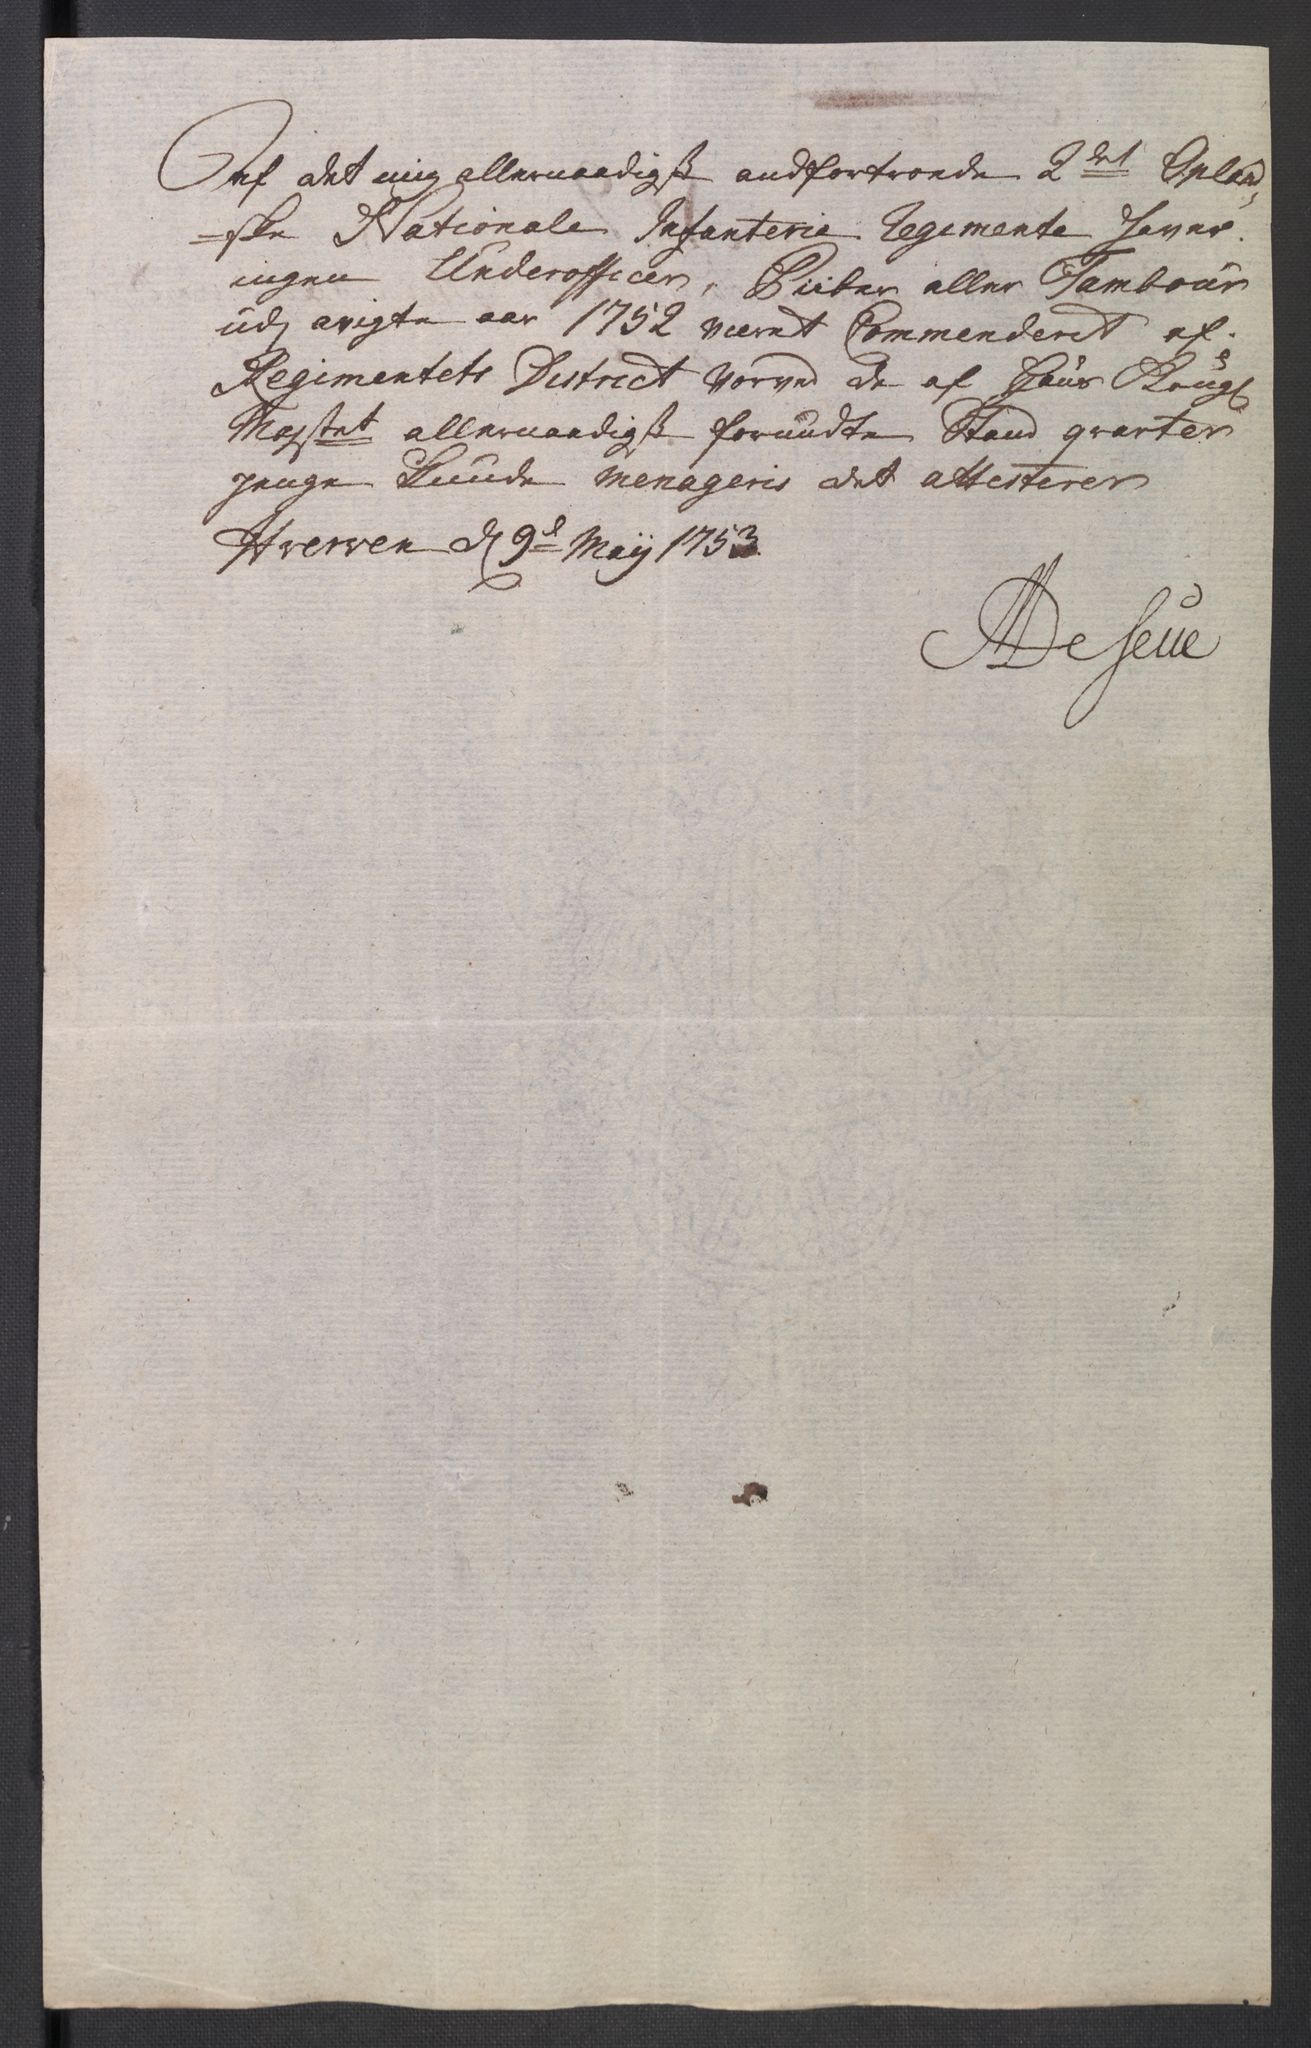 Af det mig allernaadigst andfortroede 2det Opland,
=ske Nationale Infanterie Regimente haver
ingen Underofficer, Piiber eller Tambour
udj avigte aar 1752 været Commenderet af
Regimentets District vorved de af Hans Kongl
Majstet allernaadigst forundte Stand qvarter
penge Kunde menageris det attesterer
Hverven d 9d Maij 1753
De Seue